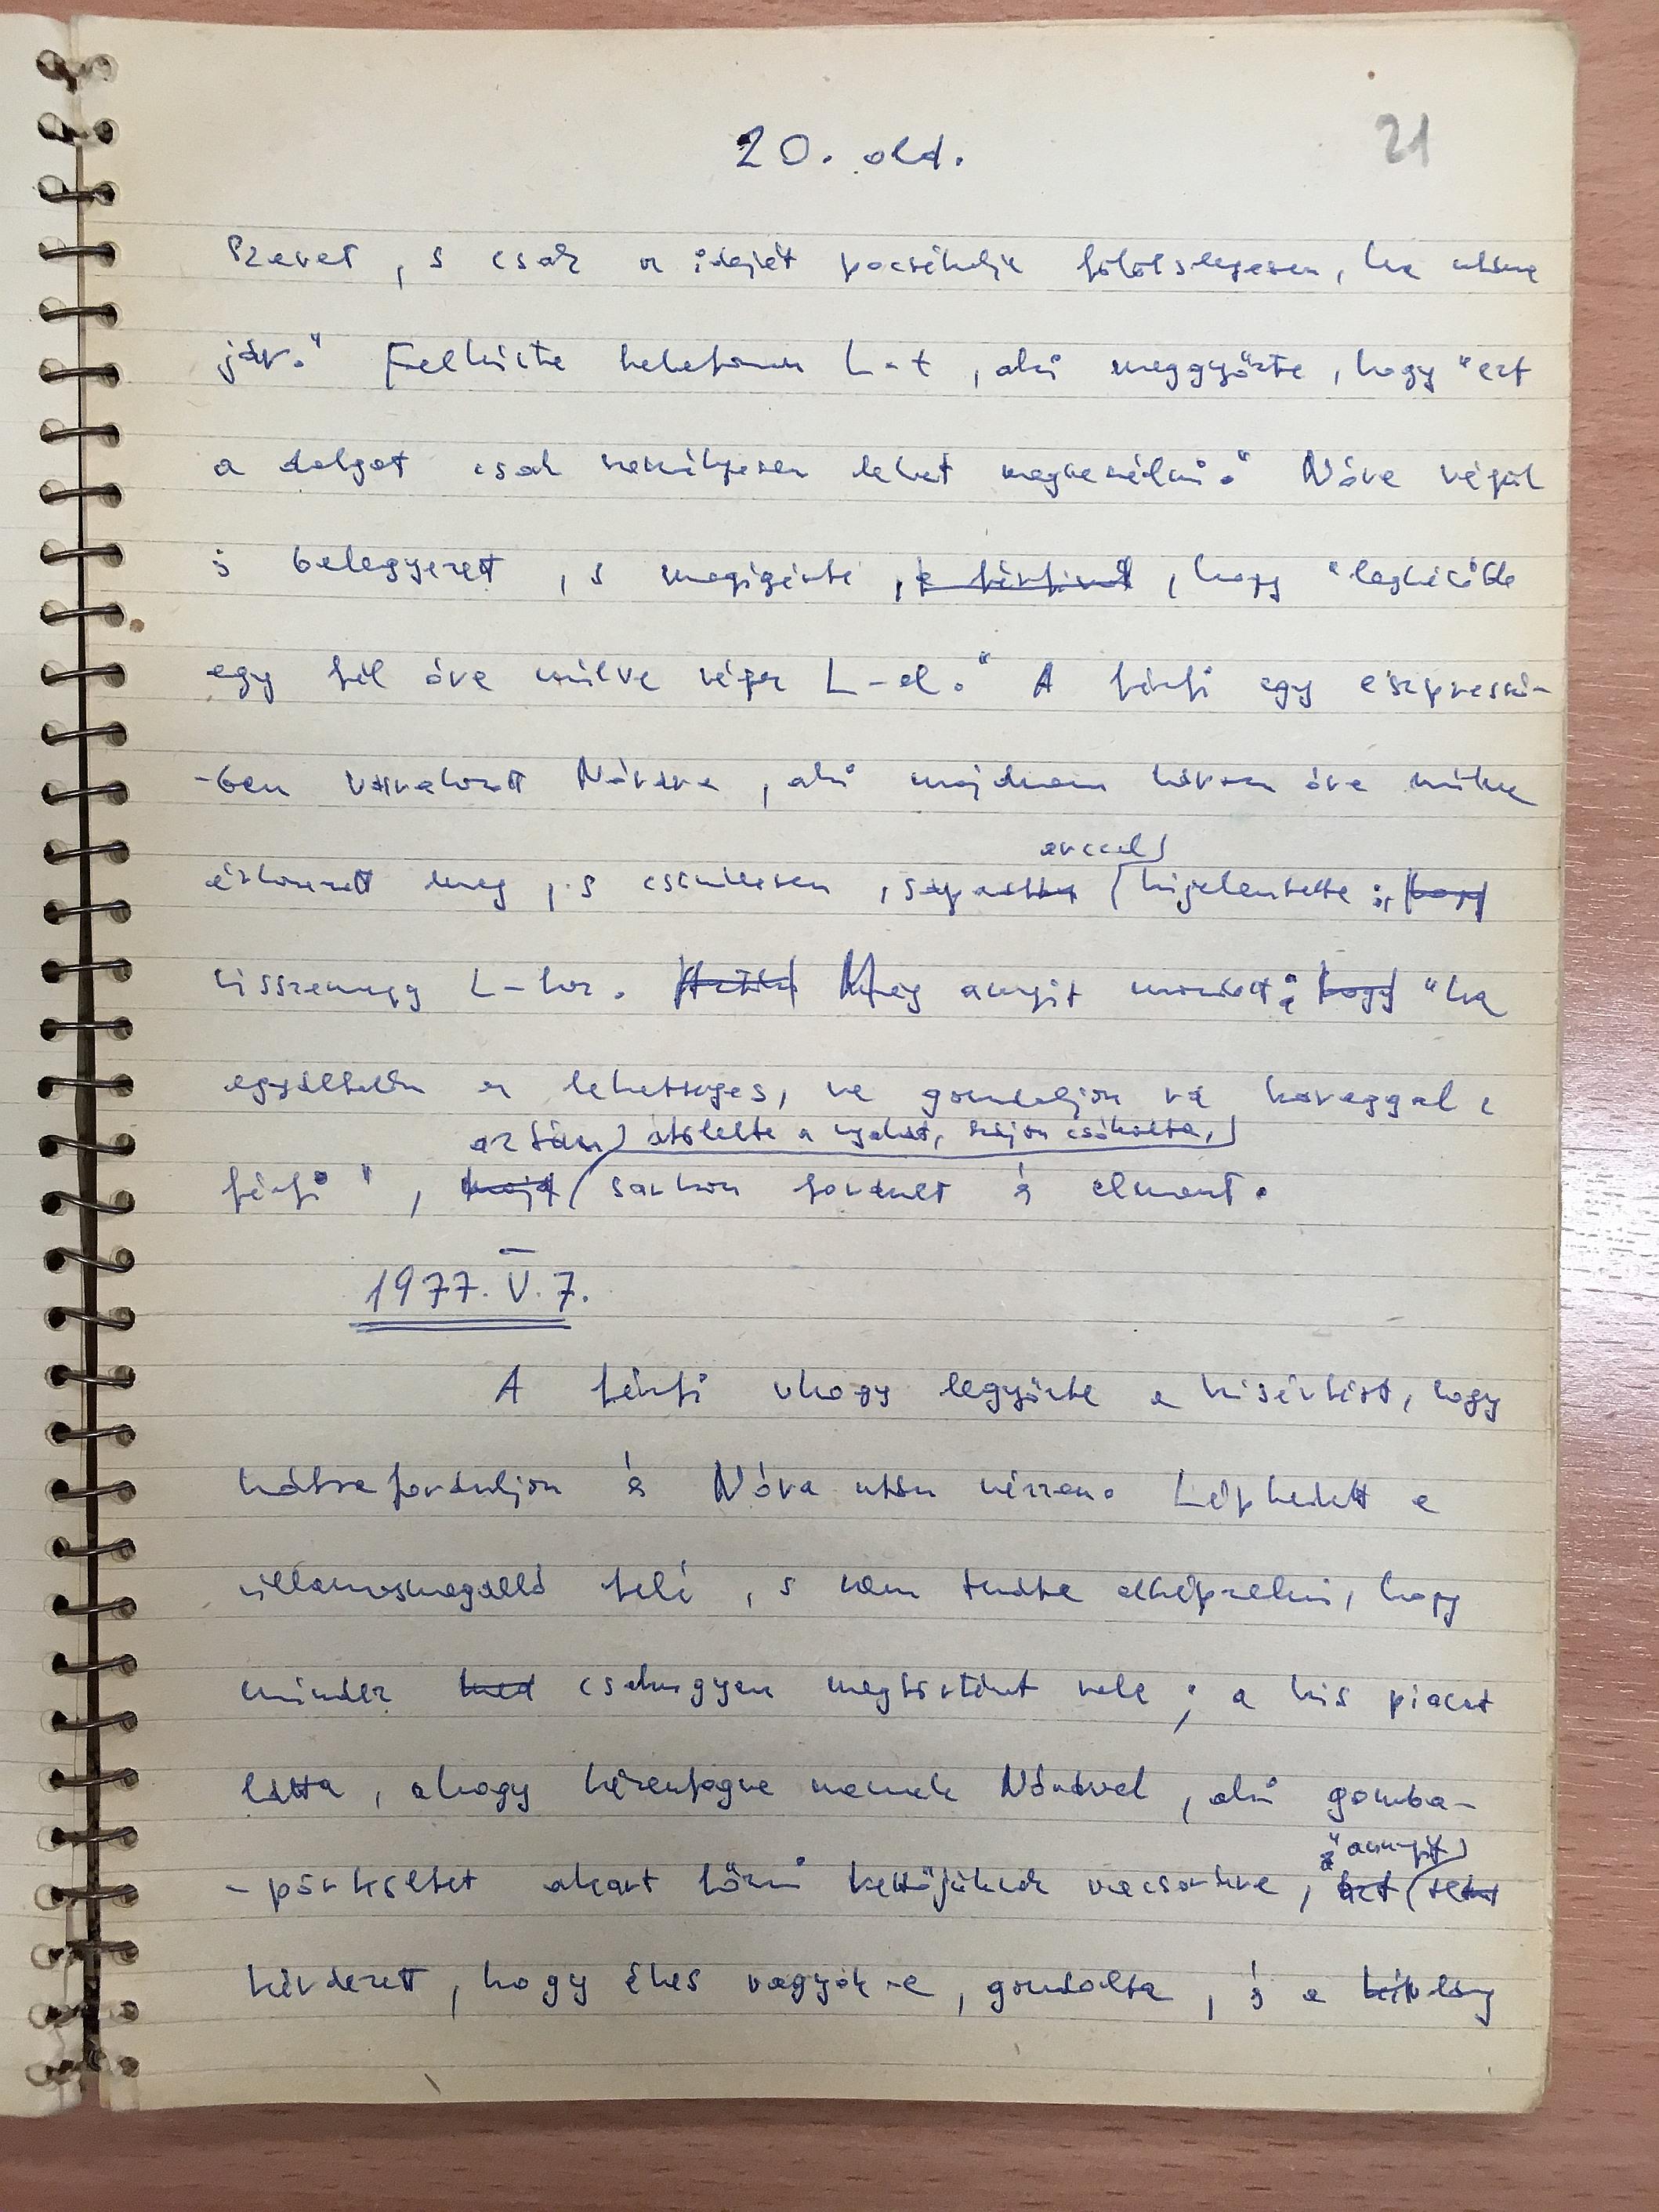 20. old.
21
szeret, s csak az idejét pocsékolja fölöslegesen, ha utána
jár." Felhívta telefonon L-t, aki meggyőzte, hogy "ezt
a dolgot csak személyesen lehet megbeszélni." Nóra végül
is belegyezett, s megigérte, a férfinak, hogy "legkésőbb
egy fél óra múlva végez L-el." A férfi egy eszpresszó-
-ben várakozott Nórára, aki majdnem három óra múlva
arccal
érkezett meg, s csendesen, sápadtan kijelentette:, hogy
visszamegy L-hez. Még annyit mondott: hogy "ha
egyáltalán ez lehetséges, ne gondoljon rá haraggal a
aztán átölelte a nyakát, szájon csókolta,
férfi", majd sarkon fordult és elment.
1977. V. 7.
A férfi ahogy legyőzte a kisértést, hogy
hátraforduljon és Nóra után nézzen. Lépkedett a
villamosmegálló felé, s nem tudta elképzelni, hogy
mindez csakugyan megtörtént vele; a kis piacot
látta, ahogy kézenfogva mennek Nórával, aki gomba-
"annyit
-pörköltet akart főzni kettőjüknek vacsorára, azt
kérdezett, hogy éhes vagyok-e, gondolta, és a lány